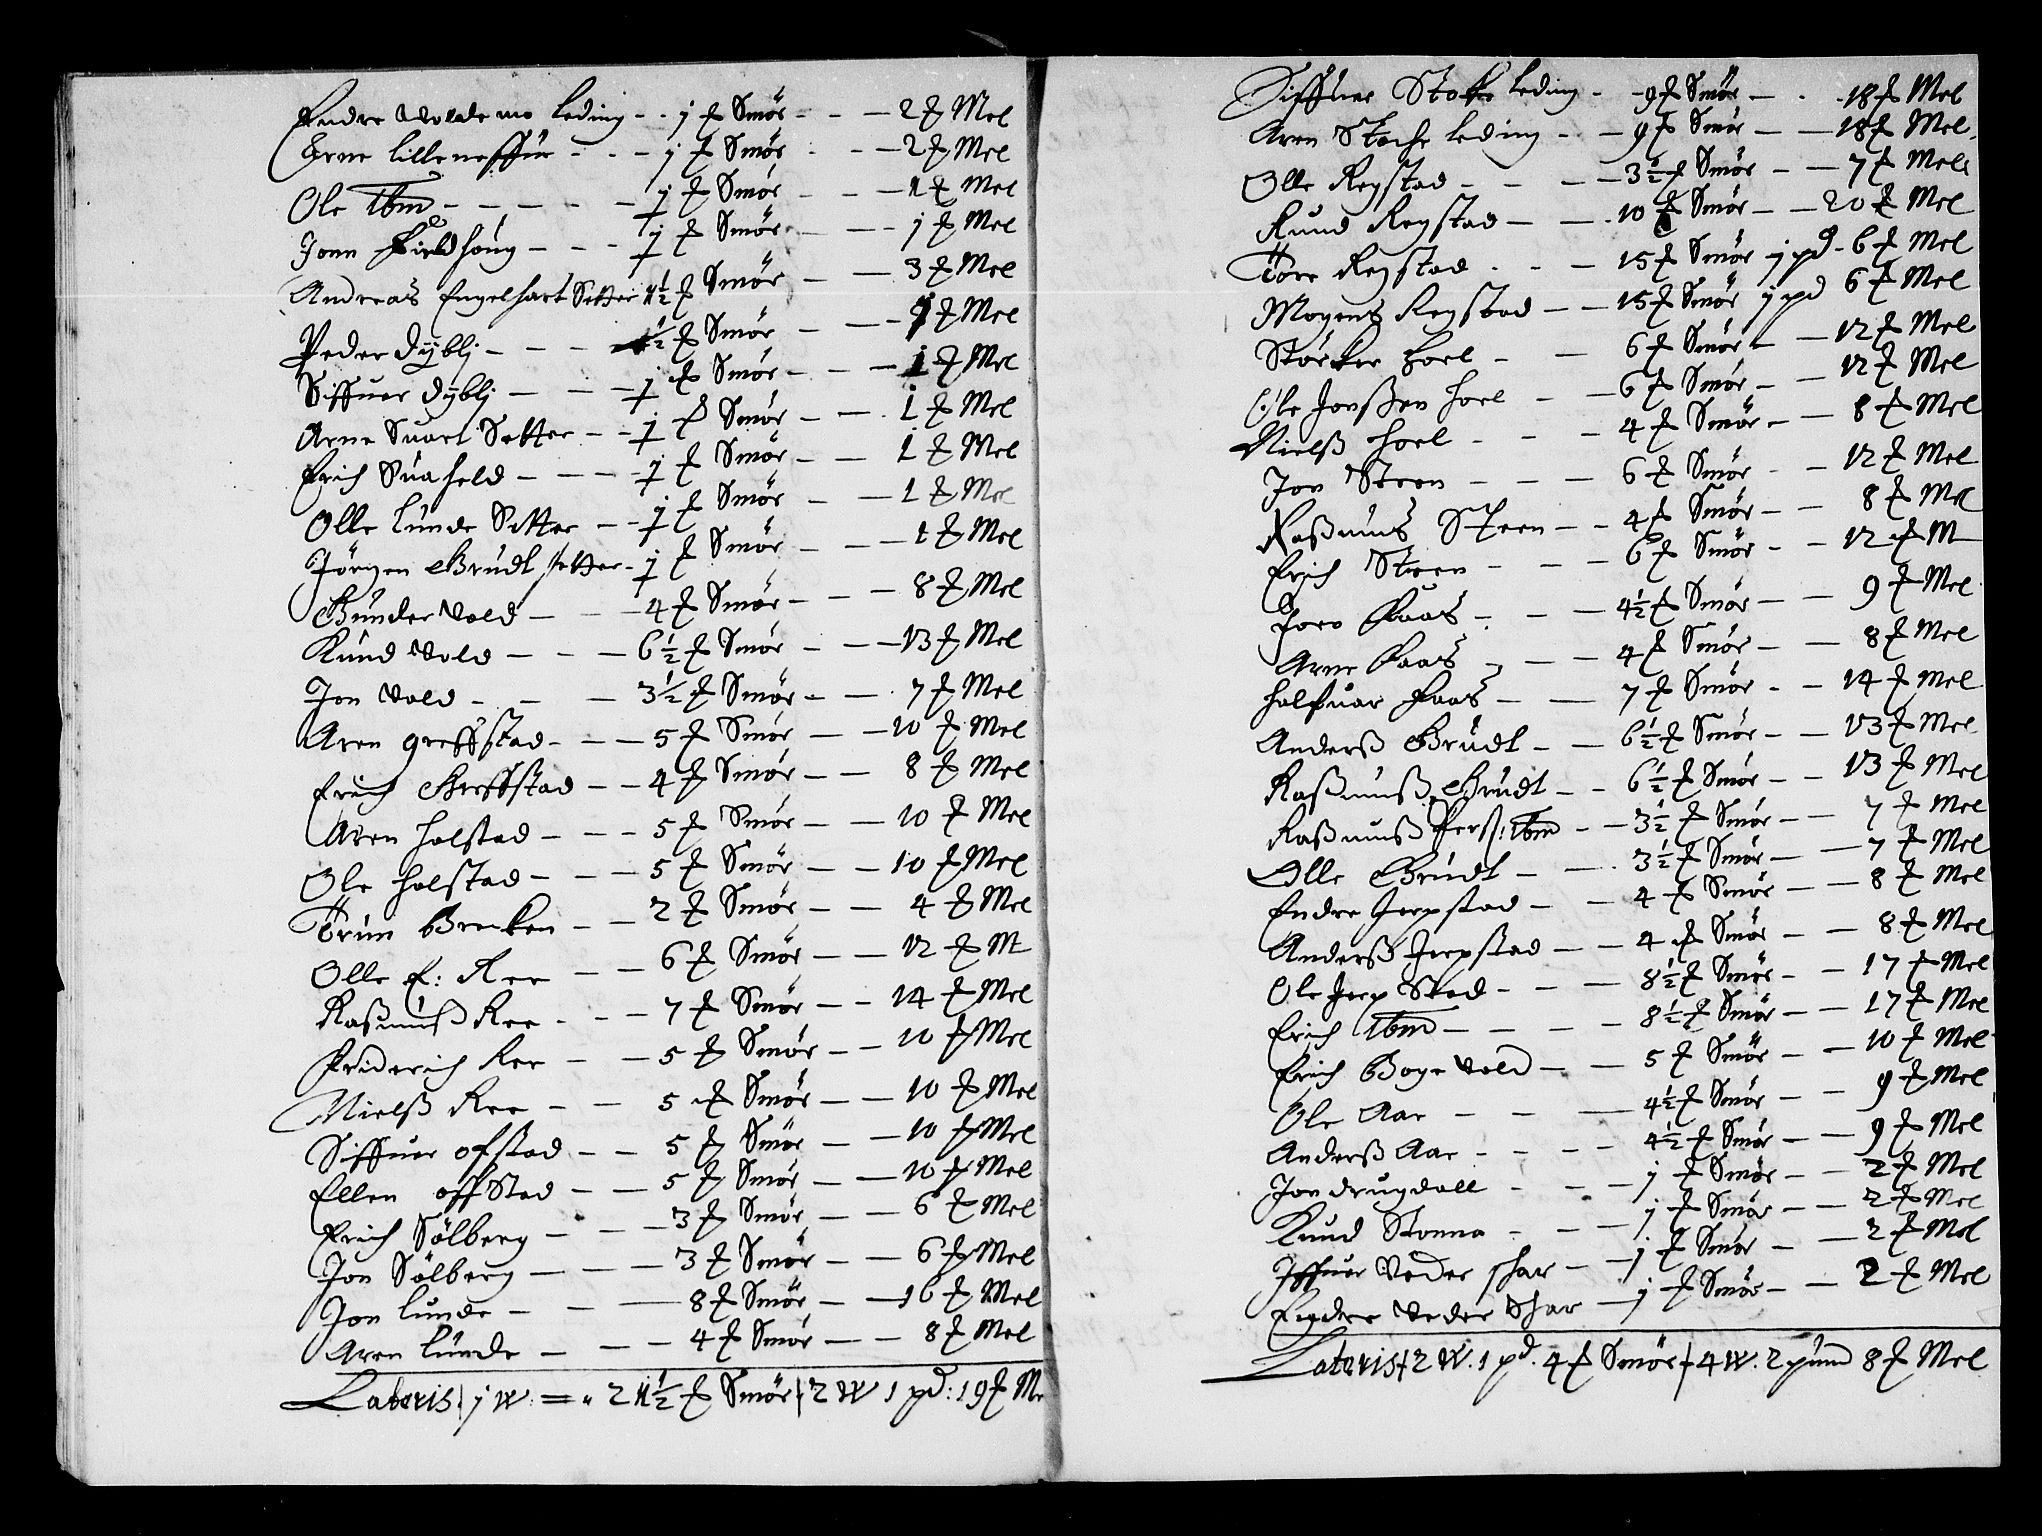 Endre Voldemo leding - - j ℔ Smör - - - 2 ℔ Mel
Erne Lilleneffür - - - j ℔ Smör - - - 2 ℔ Mel
Ole Ibm - - - - - j ℔ Smör - - - 1 ℔ Mel
Jonn Fieldhoug - - - j ℔ Smör - - - j ℔ Mel
Andreas Engelhart Setter 1½ ℔ Smör - - 3 ℔ Mel
Peder Dÿblj - - - ½ ℔ Smör - - - j ℔ Mel
Siffuer dÿblj - - - j ℔ Smör - - - 1 ℔ Mel
Arne Suart Setter - - j ℔ Smör - - 1 ℔ Mel
Erich Suaheld - - - - j ℔ Smör - - 1 ℔ Mel
Olle Lunde Setter - - j ℔ Smör - - 1 ℔ Mel
Jörgen Grüdt setter - j ℔ Smör - - - 1 ℔ Mel
Gunder Vold - - - 4 ℔ Smör - - - 8 ℔ Mel
Knud Vold - - - 6½ ℔ Smör - - - 13 ℔ Mel
Jon Vold - - - 3½ ℔ Smör - - 7 ℔ Mel
Aren greffstad - - - 5 ℔ Smör - - 10 ℔ Mel
Erich Greffstad - - 4 ℔ Smör - - 8 ℔ Mel
Aren holstad - - - 5 ℔ Smör - - 10 ℔ Mel
Ole holstad - - - 5 ℔ Smör - - 10 ℔ Mel
Trün Brecken - - 2 ℔ Smör - - 4 ℔ Mel
Olle E: Ree - - 6 ℔ Smör - - 12 ℔ M
Rasmuß Ree - - - 7 ℔ Smör - - 14 ℔ Mel
Friderich Ree - - 5 ℔ Smör - - 10 ℔ Mel
Nielß Ree - - 5 ℔ Smör - - 10 ℔ Mel
Siffuer ofstad - - 5 ℔ Smör - - 10 ℔ Mel
Ellen offstad - - 5 ℔ Smör - - 10 ℔ Mel
Erich Sölberg - - - 3 ℔ Smör - - 6 ℔ Mel
Jon Sölberg - - - 3 ℔ Smör - - 6 ℔ Mel
Jon Lunde - - - 8 ℔ Smör - - 16 ℔ Mel
Aren Lunde - - - 4 ℔ Smör - - 8 ℔ Mel
Lateris / j W = " 21½ ℔ Smör / 2 W 1 pd: 19 ℔ Me
Siffuer Stoke leding - - 9 ℔ Smör - - 18 ℔ Mel
Aren Stoche leding - - 9 ℔ Smör - - 18 ℔ Mel
Olle Regstad - - - 3½ ℔ Smör - - 7 ℔ Mel
Knud Regstad - - 10 ℔ Smör - - 20 ℔ Mel
Tore Regstad - - - 15 ℔ Smör j pd - 6 ℔ Mel
Mogens Regstad - - 15 ℔ Smör j pd 6 ℔ Mel
Störker Hoel - - 6 ℔ Smör - 12 ℔ Mel
Ole Jonßen hoel - - 6 ℔ Smör - - 12 ℔ Mel
Nielß hoel - - - 4 ℔ Smör - - 8 ℔ Mel
Jon Steen - - - 6 ℔ Smör - - 12 ℔ Mel
Raßmus Steen - - 4 ℔ Smör - - 8 ℔ Mel
Erich Steen - - - 6 ℔ Smör - - 12 ℔ M
Joen Faas - - - 4½ ℔ Smör - - 9 ℔ Mel
Arne Faas - - - 4 ℔ Smör - - 8 ℔ Mel
halfuar Faas - - 7 ℔ Smör - - 14 ℔ Mel
Anderß Grüdt - - 6½ ℔ Smör - - 13 ℔ Mel
Raßmuß Grüdt - - 6½ ℔ Smör - - 13 ℔ Mel
Raßmuß Perß: Ibm - - 3½ ℔ Smör - - 7 ℔ Mel
Olle Grüdt - - 3½ ℔ Smör - - 7 ℔ Mel
Endre Jerpstad - - 4 ℔ Smör - - 8 ℔ Mel
Anderß Jerpstad - - 4 ℔ Smör - - 8 ℔ Mel
Ole Jerp Stad - - - 8½ ℔ Smör - - 17 ℔ Mel
Erich Ibm - - - - 8½ ℔ Smör - - 17 ℔ Mel
Erich Bogevold - - 5 ℔ Smör - - 10 ℔ Mel
Ole Aae - - - 4½ ℔ Smör - - 9 ℔ Mel
Anderß Aae - - - - 4½ ℔ Smör - - 9 ℔ Mel
Jon drugdall - - - j ℔ Smör - - 2 ℔ Mel
Knud Stonna - - - j ℔ Smör - - 2 ℔ Mel
Iffuer Veder schar - - j ℔ Smör - - 2 ℔ Mel
Endre Veder Schar - j ℔ Smör - - 2 ℔ Mel
Lateris / 2 W. 1 pd. 4 ℔ Smör / 4 W. 2 pund 8 ℔ Mel